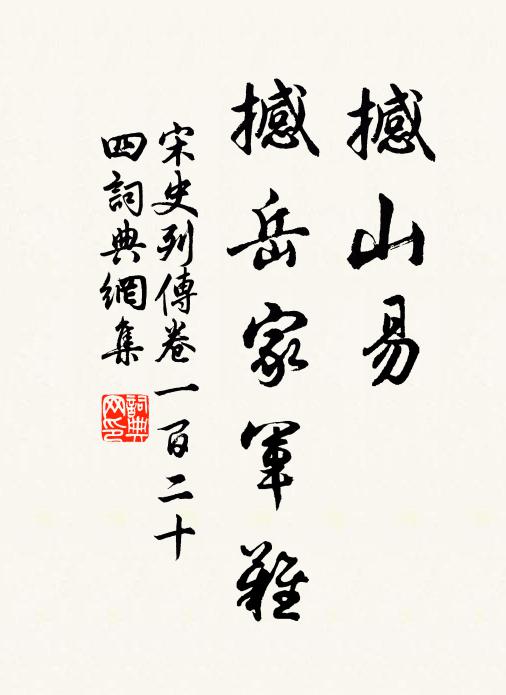 撼山易
撼岳家軍難
宋史列傳卷一百二十
四詞典網集
詞典
网印